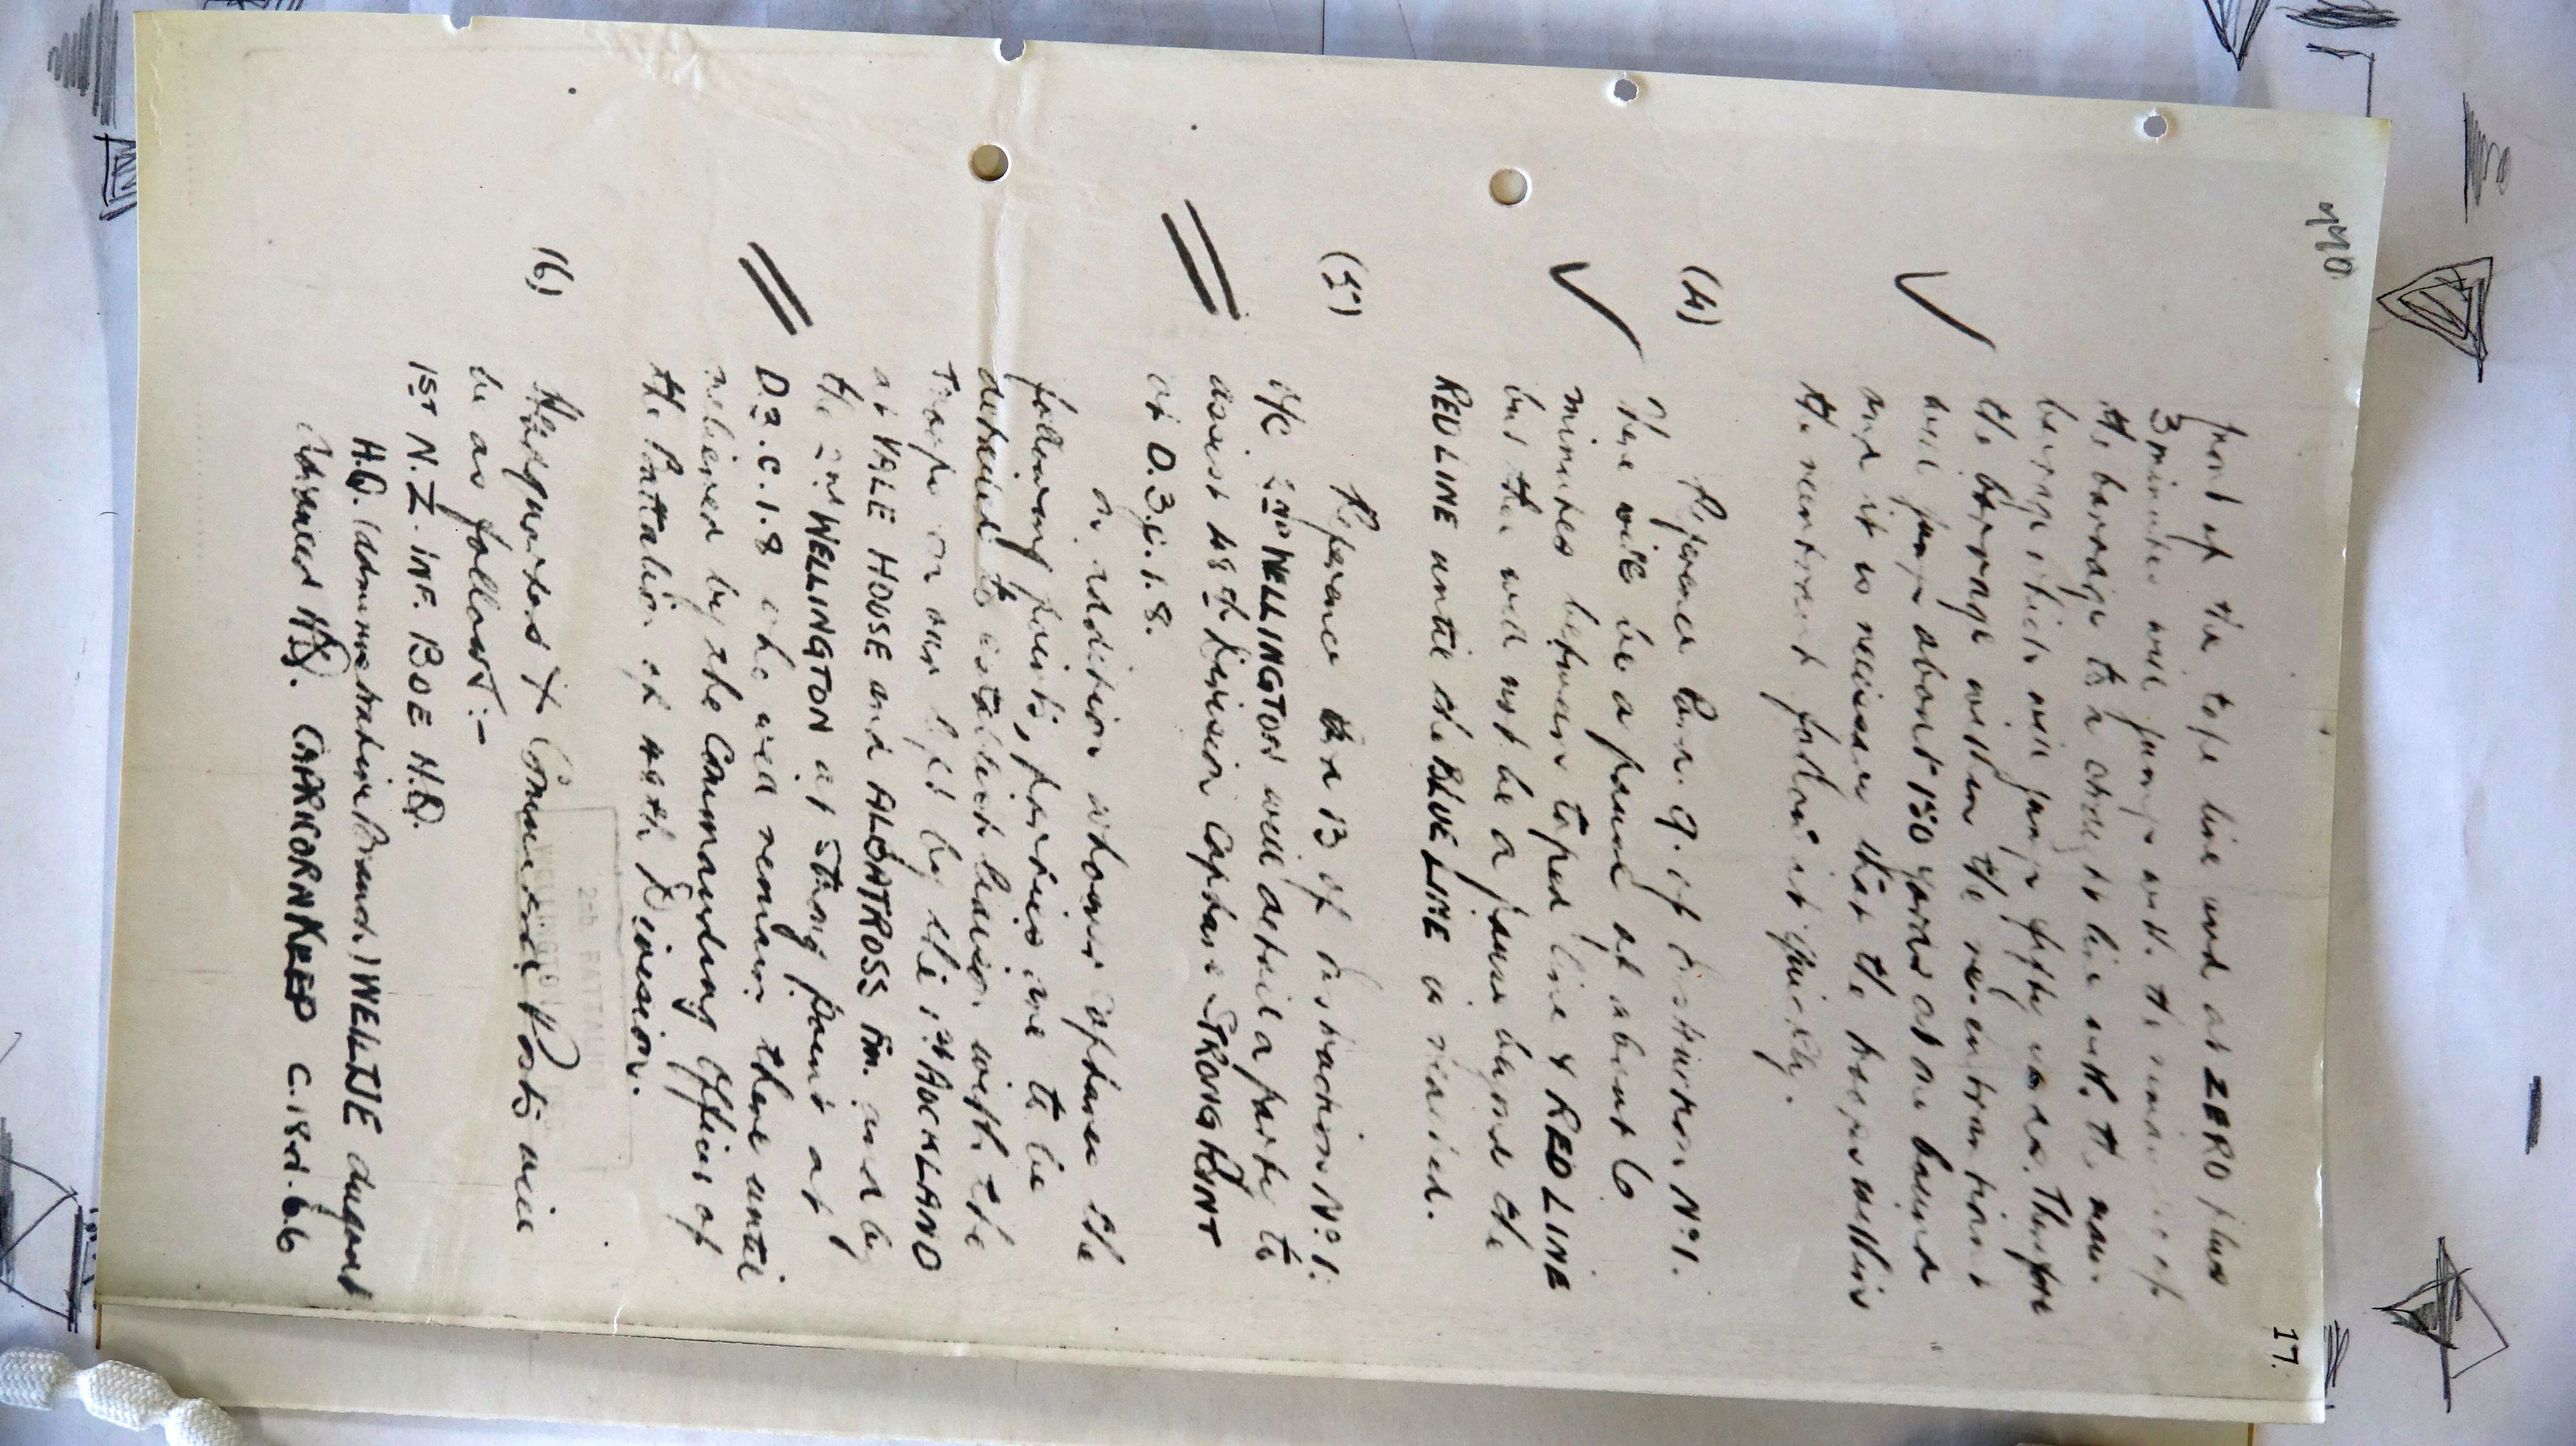 17.
front of the tape line and at ZERO plus
3 minutes will jump with the remainder of
the barrage to a straight line with the main
barrage which will jump fifty yards. Therefore
the barrage within the re-entrant
will jump about 150 yards at one bound
and it is necessary that the troops within
the reentrant follow it quickly.
(4) Reference Para. 9. of Instruction No 1.
There will be a pause of about 6
minutes between taped line & RED LINE
but there will not be a pause beyond the
RED LINE until the BLUE LINE is reached.
(5) Reference Para 13 of Instruction No 1.
O/C 2ND WELLINGTON will detail a party to
assist 48th Division Capture STRONG POINT
at D.3.c.1.8.
In addition whoever captures the
following points, parties are to be
detailed to establish liaison with the
Troops on our left by the 1st AUCKLAND
at VALE HOUSE and ALBATROSS Fm. and by
the 2nd WELLINGTON at Strong Point at
D.3.c.1.8 and will remain there until
relieved by the Commanding Officer of
the Battalion of 48th Division.
(6) Headquarters & Command Posts will
be as follows:-
1ST N.Z. INF. BDE H.Q.
H.Q. (Administrative Branch) WELTJE dugout
Advanced HQ. CAPRICORN KEEP C.18.d.6.6
2nd BATTALION